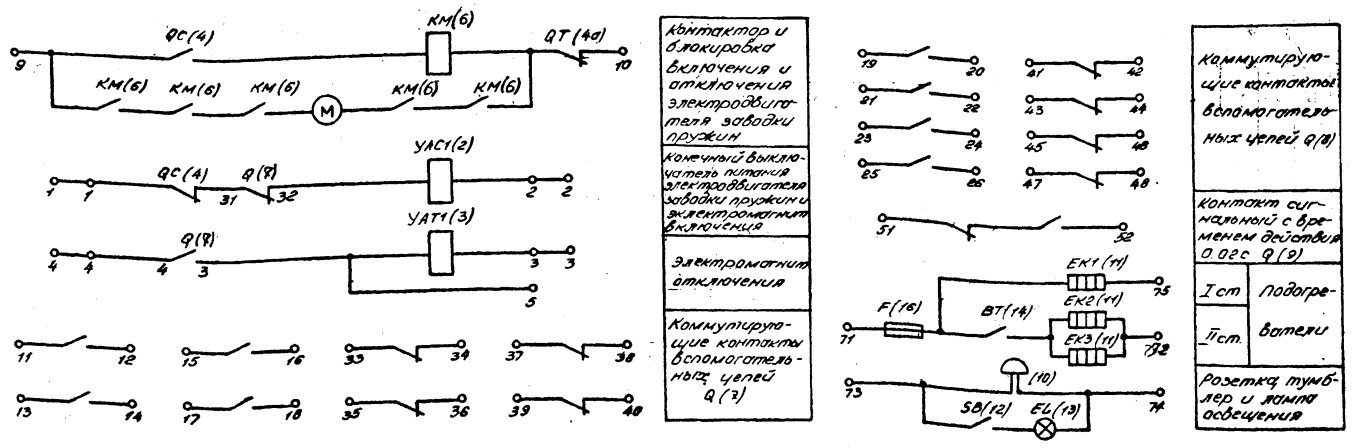 9 QC(4) КМ(6) QT(4а) 10
КМ(6) КМ(6) КМ(6) М КМ(6) КМ(6)
1 1 QC(4) 1 31 Q(7) 32 YAC1(2) 2 2
4 4 4 Q(7) 3 YAT1(3) 3 3
5
11 12 15 16 33 34 37 38
13 14 17 18 35 36 39 40
Контактор и
блокировка
включения и
отключения
электродвига-
теля заводки
пружин
Конечный выклю-
чатель питания
электродвигателя
заводки пружин и
эклектромагнит
включения
Электромагнит
отключения
Коммутирую-
щие контакты
вспомогатель-
ных цепей
Q(7)
19 20 41 42
21 22 43 44
23 24 45 46
25 26 47 48
51 52
EK1(11) 75
F(16) BT(14) EK2(11)
71 EK3(11)
73 (10) 74
SB(12) EL(13)
Коммутирую-
щие контакты
вспомогатель-
ных цепей Q(8)
Контакт сиг-
нальный с вре-
менем действия
0.02с Q(9)
I ст. Подогре-
II ст. ватели
Розетка, тумб-
лер и лампа
освещения